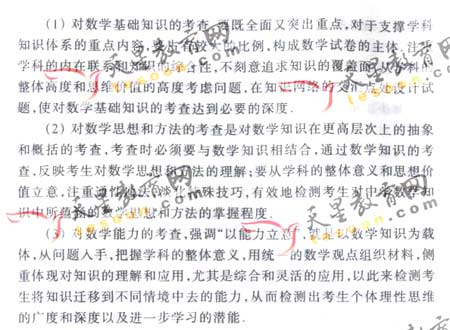 (1) 对数学基础知识的考查,既全面又突出重点,对于支撑学科
知识体系的重点内容,要占有较大的比例,构成数学试卷的主体,注重
学科的内在联系和知识的综合性,不刻意追求知识的覆盖面.从学科的
整体高度和思维价值的高度考虑问题,在知识网络的交汇点设计试
题,使对数学基础知识的考查达到必要的深度.
(2) 对数学思想和方法的考查是对数学知识在更高层次上的抽象
和概括的考查,考查时必须要与数学知识相结合,通过数学知识的考
查,反映考生对数学思想和方法的理解;要从学科的整体意义和思想价
值立意,注重通性通法,淡化特殊技巧,有效地检测考生对中学数学知
识中所蕴涵的数学思想和方法的掌握程度.
(3) 对数学能力的考查,强调“以能力立意”,就是以数学知识为载
体,从问题入手,把握学科的整体意义,用统一的数学观点组织材料,侧
重体现对知识的理解和应用,尤其是综合和灵活的应用,以此来检测考
生将知识迁移到不同情境中去的能力,从而检测出考生个体理性思维
的广度和深度以及进一步学习的潜能.
天星教育网
天星教育网
天星教育网